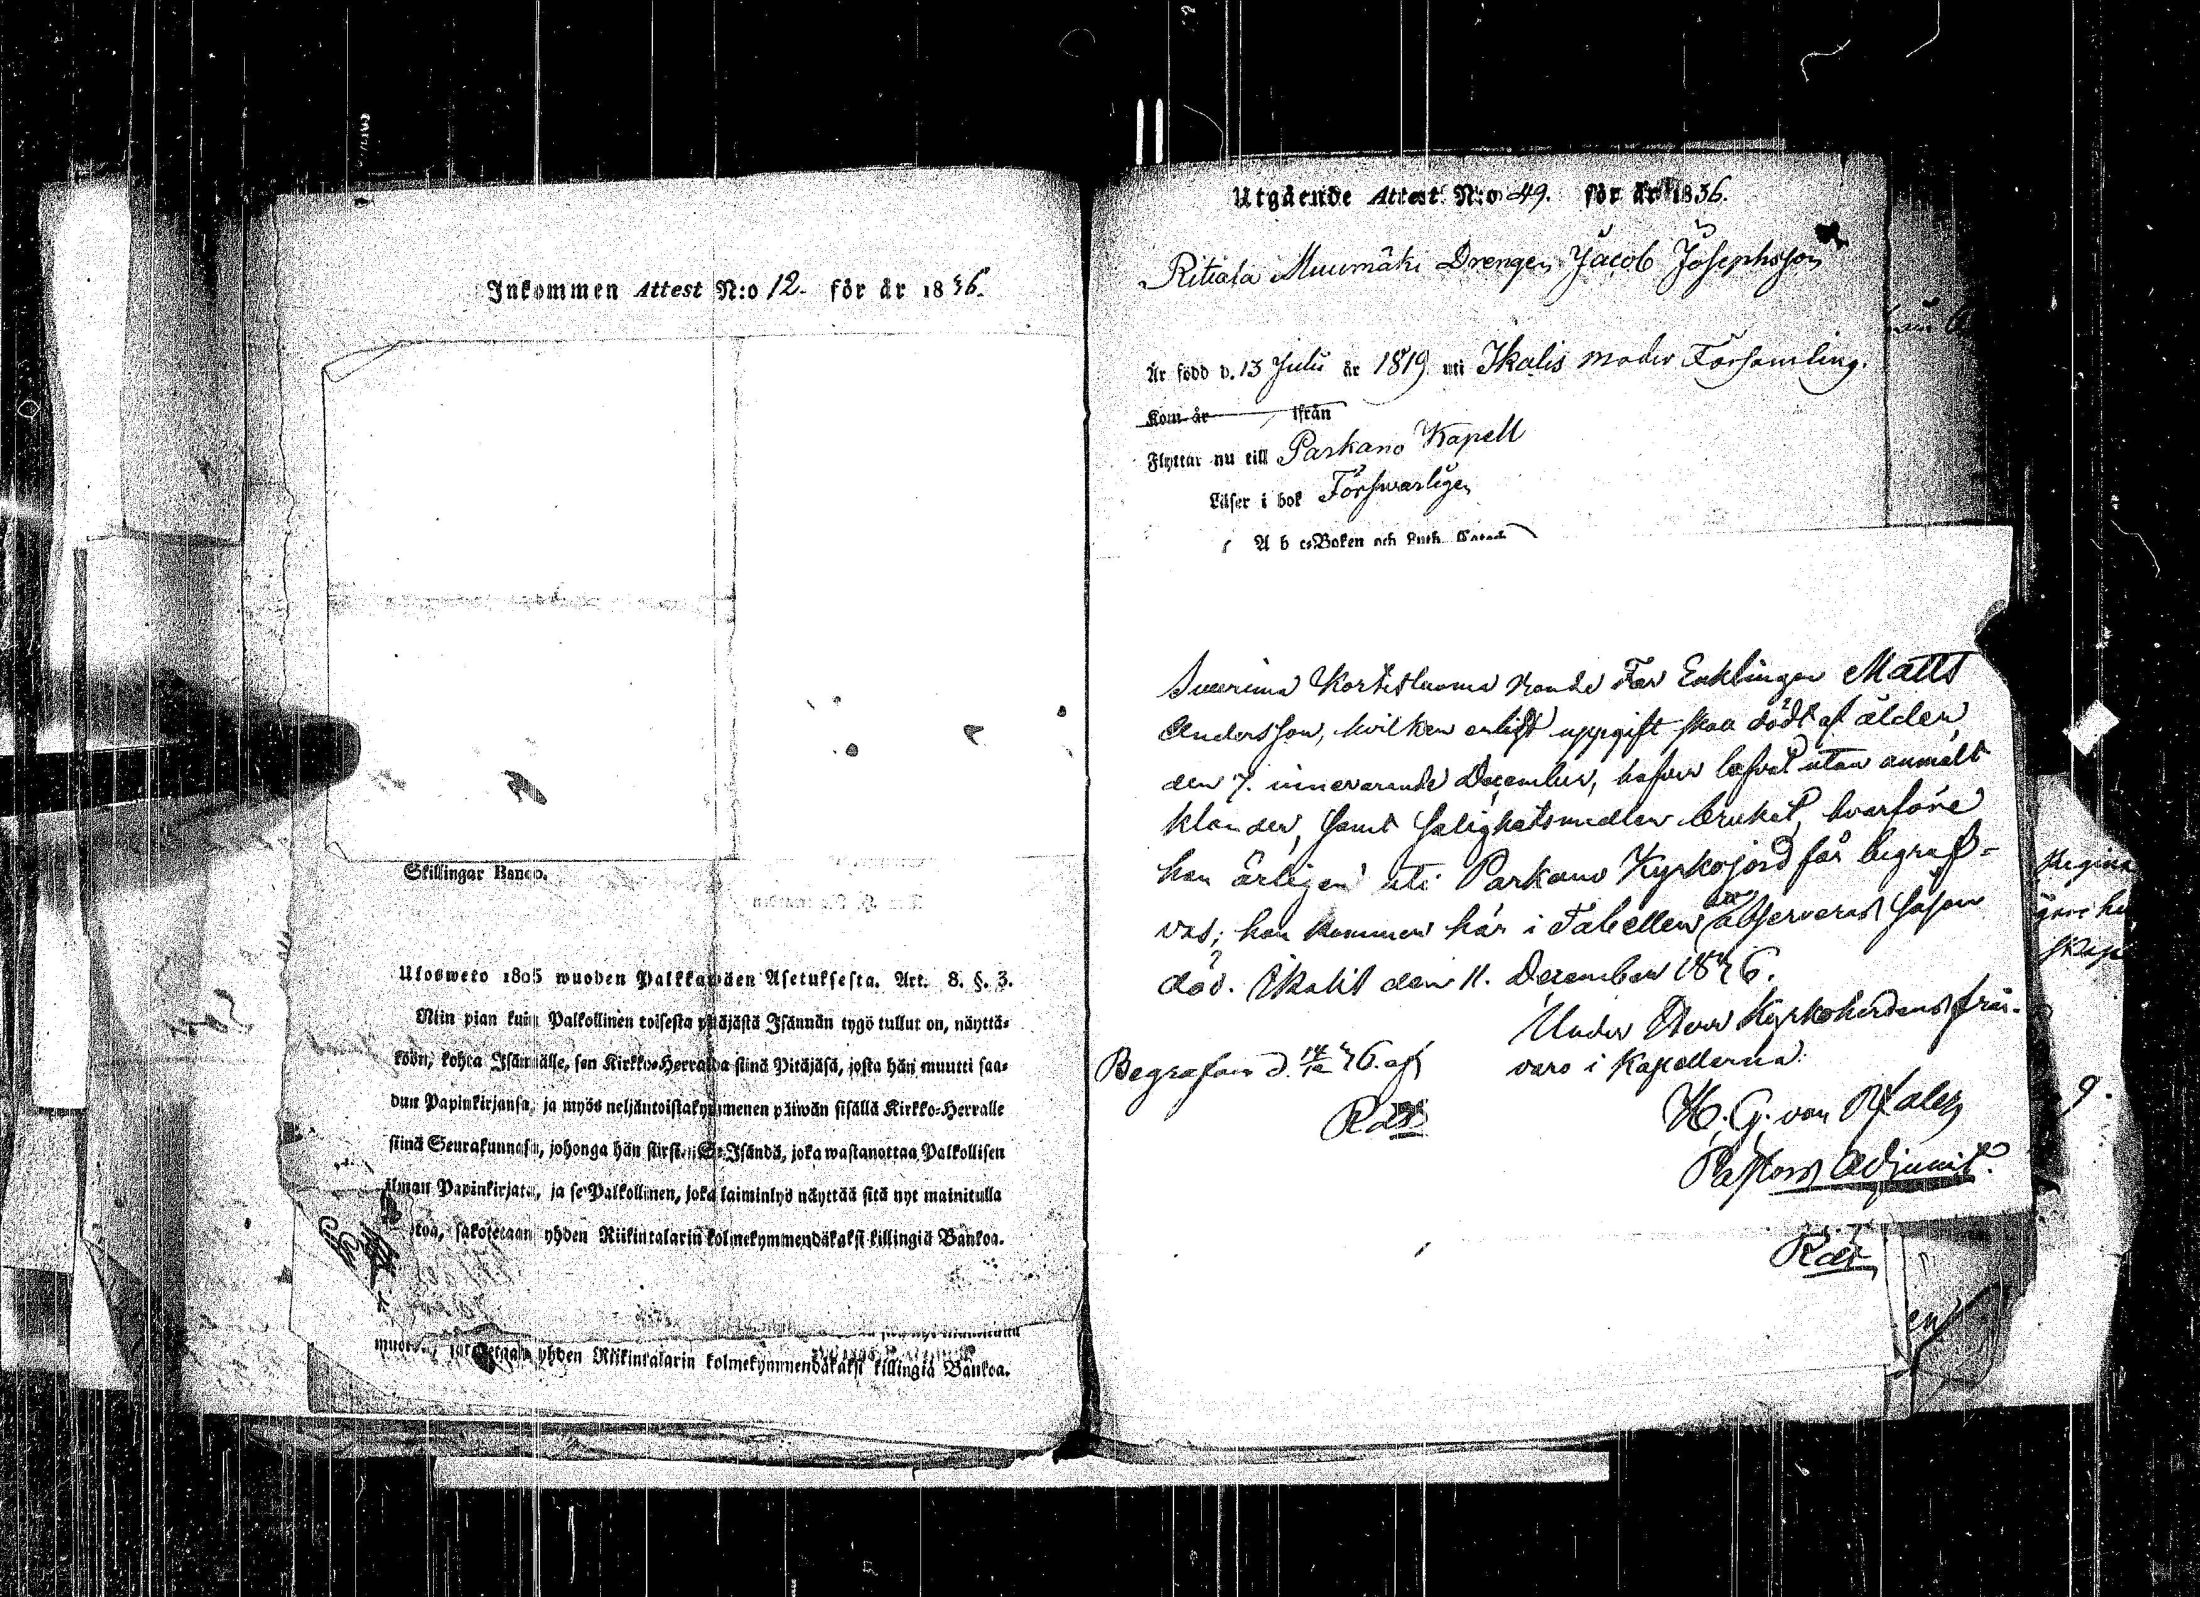 Inkommen Attest N:o 12. för år 1836.
Skillingar Banco.
Ulosweto 1805 wuoden Palkkawäen Asetuksesta. Art. 8. §. 3.
Niin pian kuin Palkollinen toisesta pitäjästä Isännän tygö tullut on, näyttä-
köön, kohta Isännälle, sen Kirkko-Herralda siinä Pitäjäsä, josta hän muutti saa-
dun Papinkirjansa, ja myös neljäntoistakymmenen päiwän sisällä Kirkko-Herralle
siinä Seurakunnasa, johonga hän siirsi. Se Isändä, joka wastanottaa Palkollisen
ilman Papinkirjata, ja se Palkollinen, joka laiminlyö näyttää sitä nyt mainitulla
toa, sakotetaan yhden Riikintalarin kolmekymmendäkaksi killingiä Bankoa.
yhden Riikintalarin kolmekymmendäkaksi killingiä Bankoa.
Utgående Attest N:o 49. för år 1836.
Ritiala Muumäki Drengen Jacob Josephsson
Är född d. 13 Julii år 1819 uti Ikalis moder Församling.
Kom år ifrån
Flyttar nu till Parkano Kapell
Läser i bok Förswarligen
A b c-Boken och Luth. Catech
Kortetluoma Enklingen Matts
Andersson, hvilken enligt uppgift skall dödt af ålder
den 7. innevarande December, hafver lefvat utan anmält
klander, samt salighetsmedlen brukat, hvarföre
han ärligen uti Parkano Kyrkojord får begraf-
vas; han kommer här i Tabellen observeras såsom
död. Ikalis den 11. December 1846.
Under Herr Kyrkoherdens från-
varo i Kapellerna.
H. G. von Pfaler
Pastors Adjunct.
Begrafven d. 14/12 46. af